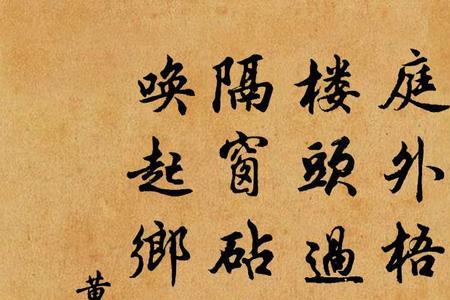 庭外梧
楼頭過
隔窗砧
唤起鄉
黄